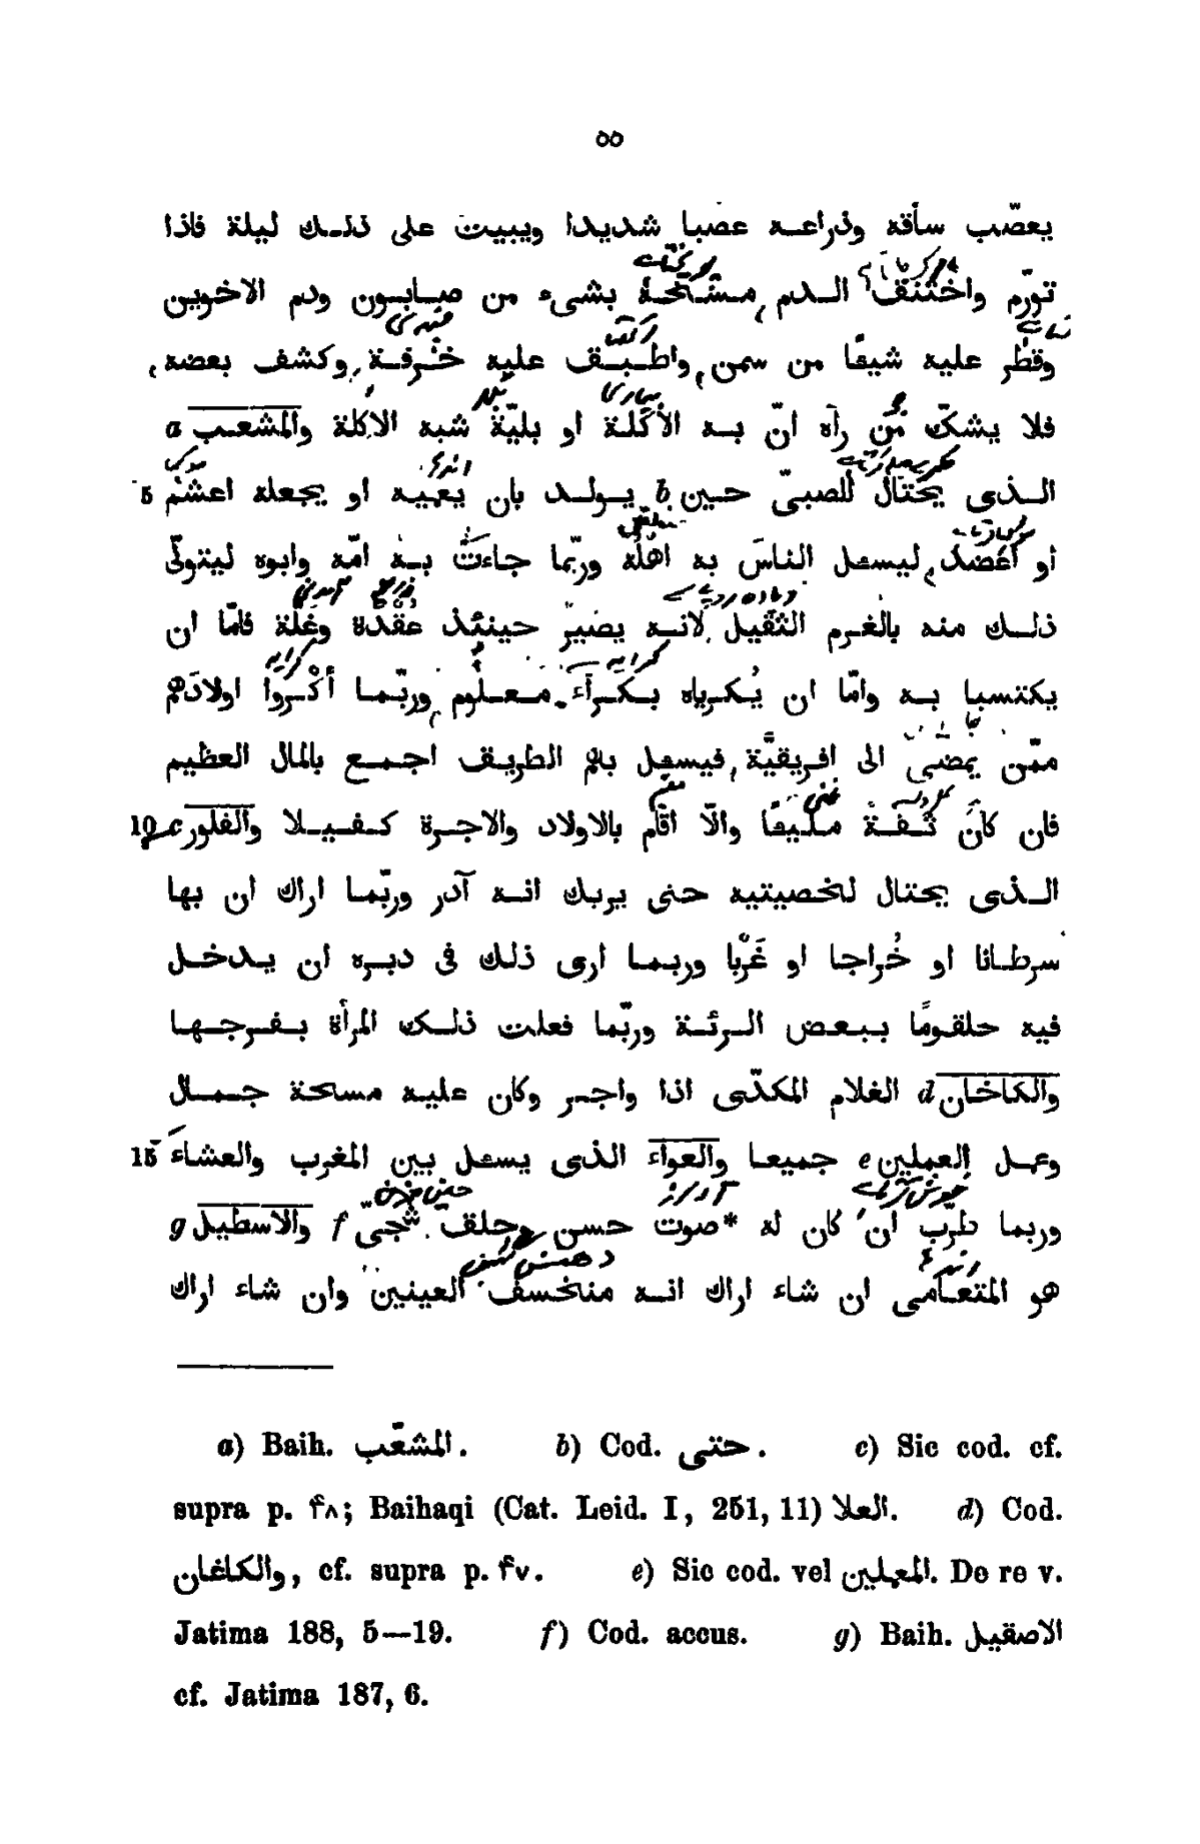 ٥٥
يعصّب سأقه وذراعه عصبا شديدا ويبيت على ذلك ليلة فاذا
تورّم واختنق الدم مسّحه بشىء من صابون ودم الاخوين
وقطّر عليه شيئًا من سمن واطبق عليه خرقة وكشف بعضه
فلا يشكّ من رآه انّ به الأكلة او بليّة شبه الاكلة والمشعب a
الذى يحتال للصبىّ حين b يولد بان يعميه او يجعله اعشم 5
او أعضد ليسعل الناسَ به اهله وربّما جاءت به امّه وابوه ليتولّى
ذلك منه بالغرم الثقيل لانه يصير حينئذ عقدة وغلّة فامّا ان
يكتسبا به وامّا ان يُكرياه بكرآء معلوم وربّما أكْروا اولادهم
ممّن يمضى الى افريقيّة فيسعل بهم الطريق اجمع بالمال العظيم
فان كان ثقة مليئًا والّا اقام بالاولاد والاجرة كفيلا والفلور c 10
الذى يحتال لخصيتيه حتى يريك انه آدر وربّما اراك ان بها
سرطانا او خُراجا او غَرْبا وربما ارى ذلك فى دبره ان يدخل
فيه حلقومًا ببعض الرئة وربّما فعلت ذلك المرأة بفرجها
والكاخان d الغلام المكدّى اذا واجر وكان عليه مسحة جمال
وعمل العملين e جميعا والعواء الذى يسعل بين المغرب والعشاء 15
وربما طرّب ان كان له *صوت حسن وحلق شجىّ f والاسطيل g
هو المتعامى ان شاء اراك انه منخسف العينين وان شاء اراك
a) Baih. المشعّب. b) Cod. حتى. c) Sic cod. cf.
supra p. ۴۸; Baihaqi (Cat. Leid. I, 251, 11) العلا. d) Cod.
والكاغان, cf. supra p. ۴۷. e) Sic cod. vel المعلين. De re v.
Jatima 188, 5—19. f) Cod. accus. g) Baih. الاصقيل
cf. Jatima 187, 6.